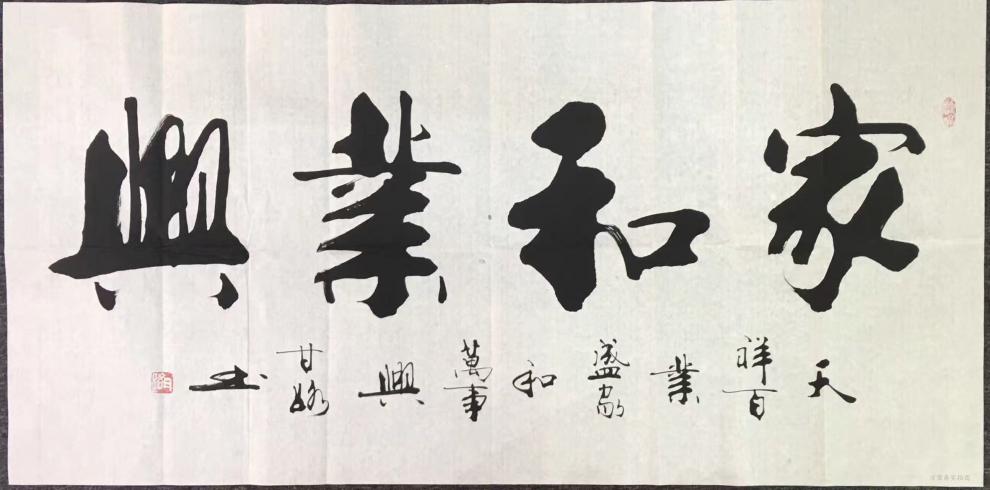 家和業興
天祥百業盛家和萬事興甘书